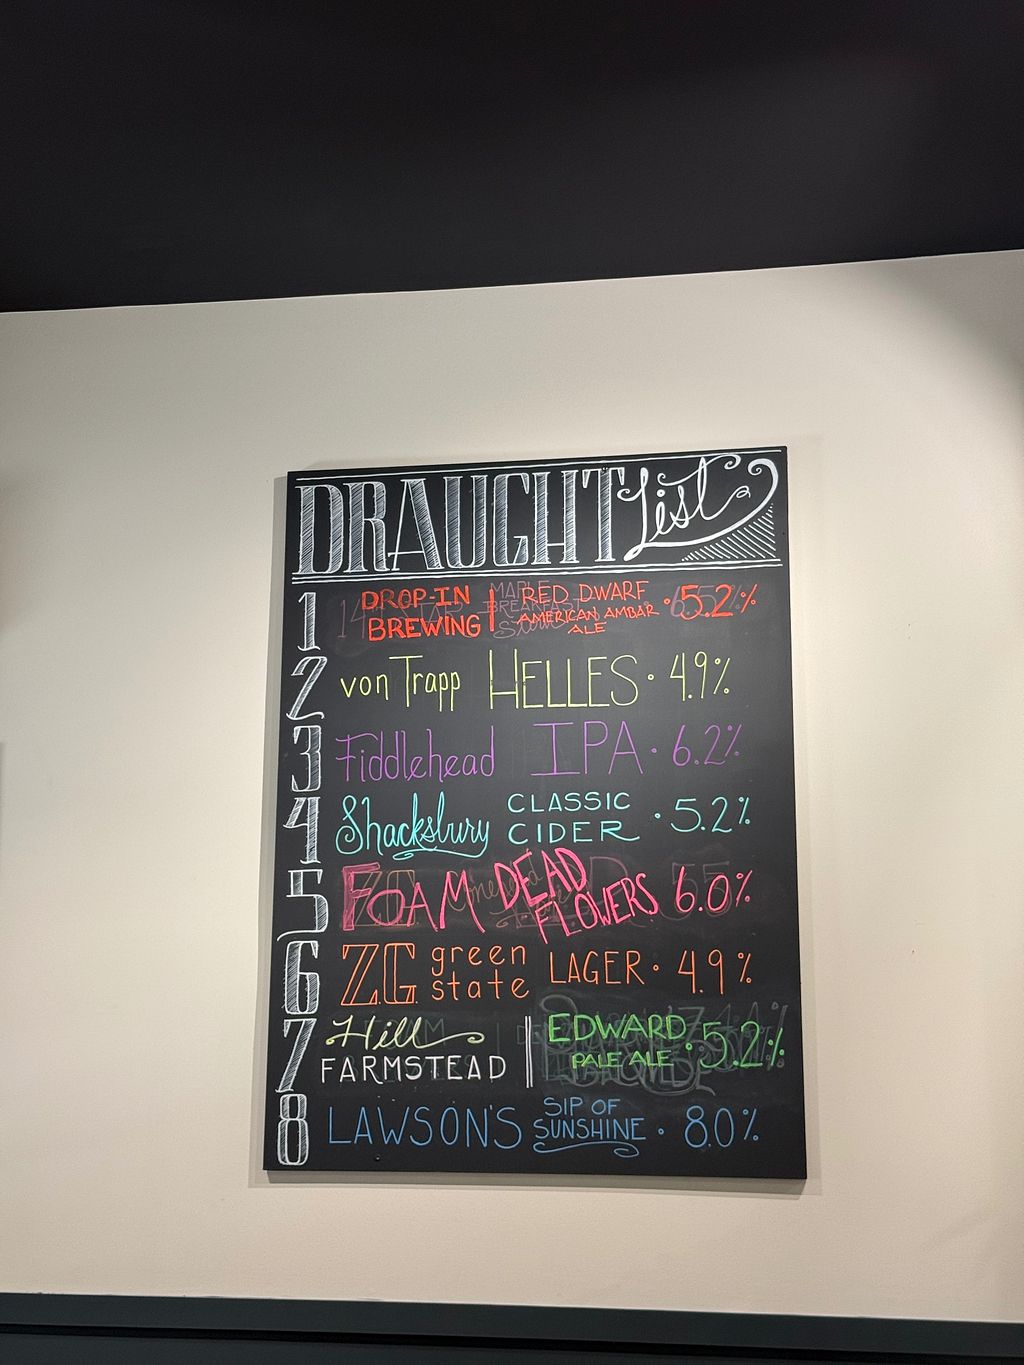 DRAUGHT List
1 DROP-IN BREWING | RED DWARF AMERICAN AMBAR ALE · 5.2%
2 von Trapp HELLES · 4.9%
3 Fiddlehead IPA · 6.2%
4 Shacksbury CLASSIC CIDER · 5.2%
5 FOAM DEAD FLOWERS 6.0%
6 Z.G. green state LAGER · 4.9%
7 Hill FARMSTEAD | EDWARD PALE ALE · 5.2%
8 LAWSON'S SIP OF SUNSHINE · 8.0%